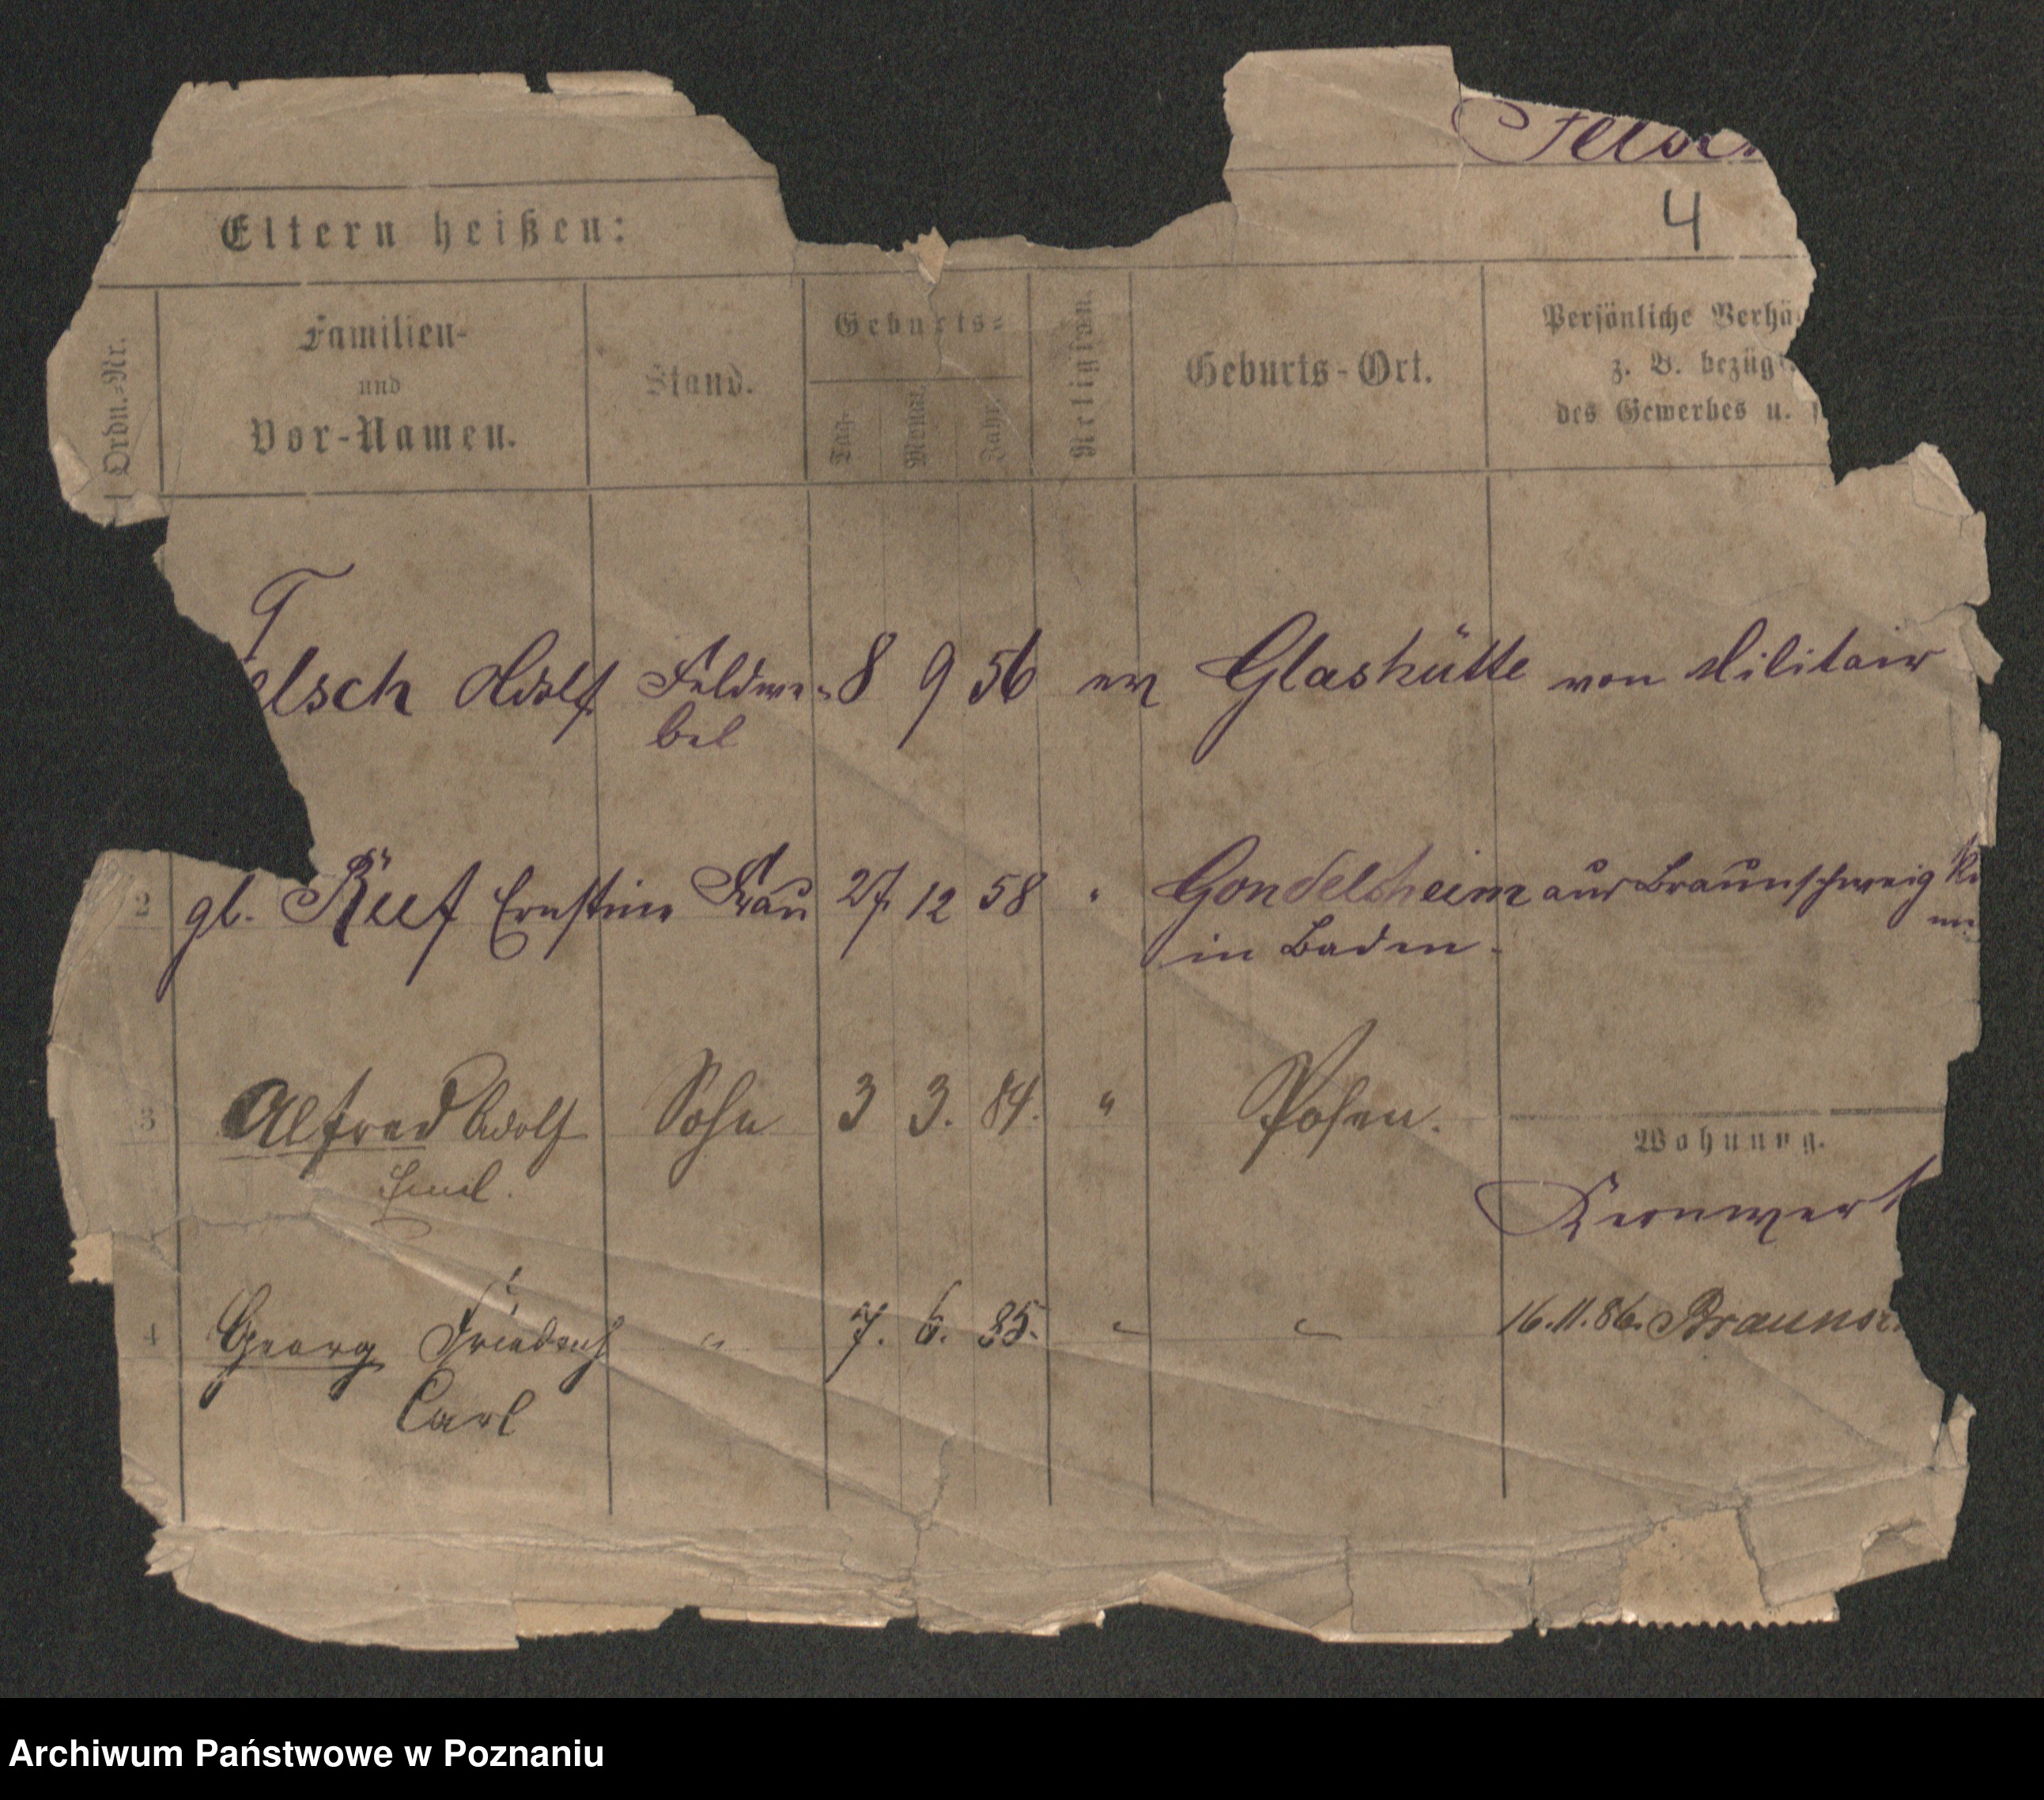 Felsch
4
Eltern heißen:
Ordn.-Nr.
Familien-
und
Vor-Namen.
Stand.
Geburts-
Tag.
Monat.
Jahr.
Religion.
Geburts-Ort.
Persönliche Verhä
z. B. bezügl
des Gewerbes u.
Felsch Adolf Feldwe- 8 9 56 ev Glashütte von Militair
bel
2 gb. Ruf Ernstine Frau 27. 12 58 " Gondelsheim aus Braunschweig
in Baden.
3 Alfred Adolf Sohn 3 3. 84. " Posen.
Emil.
Wohnung.
Kernwerk
4 Georg Friedrich " 7. 6. 85. " " 16.11.86. Braunsch
Carl
Archiwum Państwowe w Poznaniu